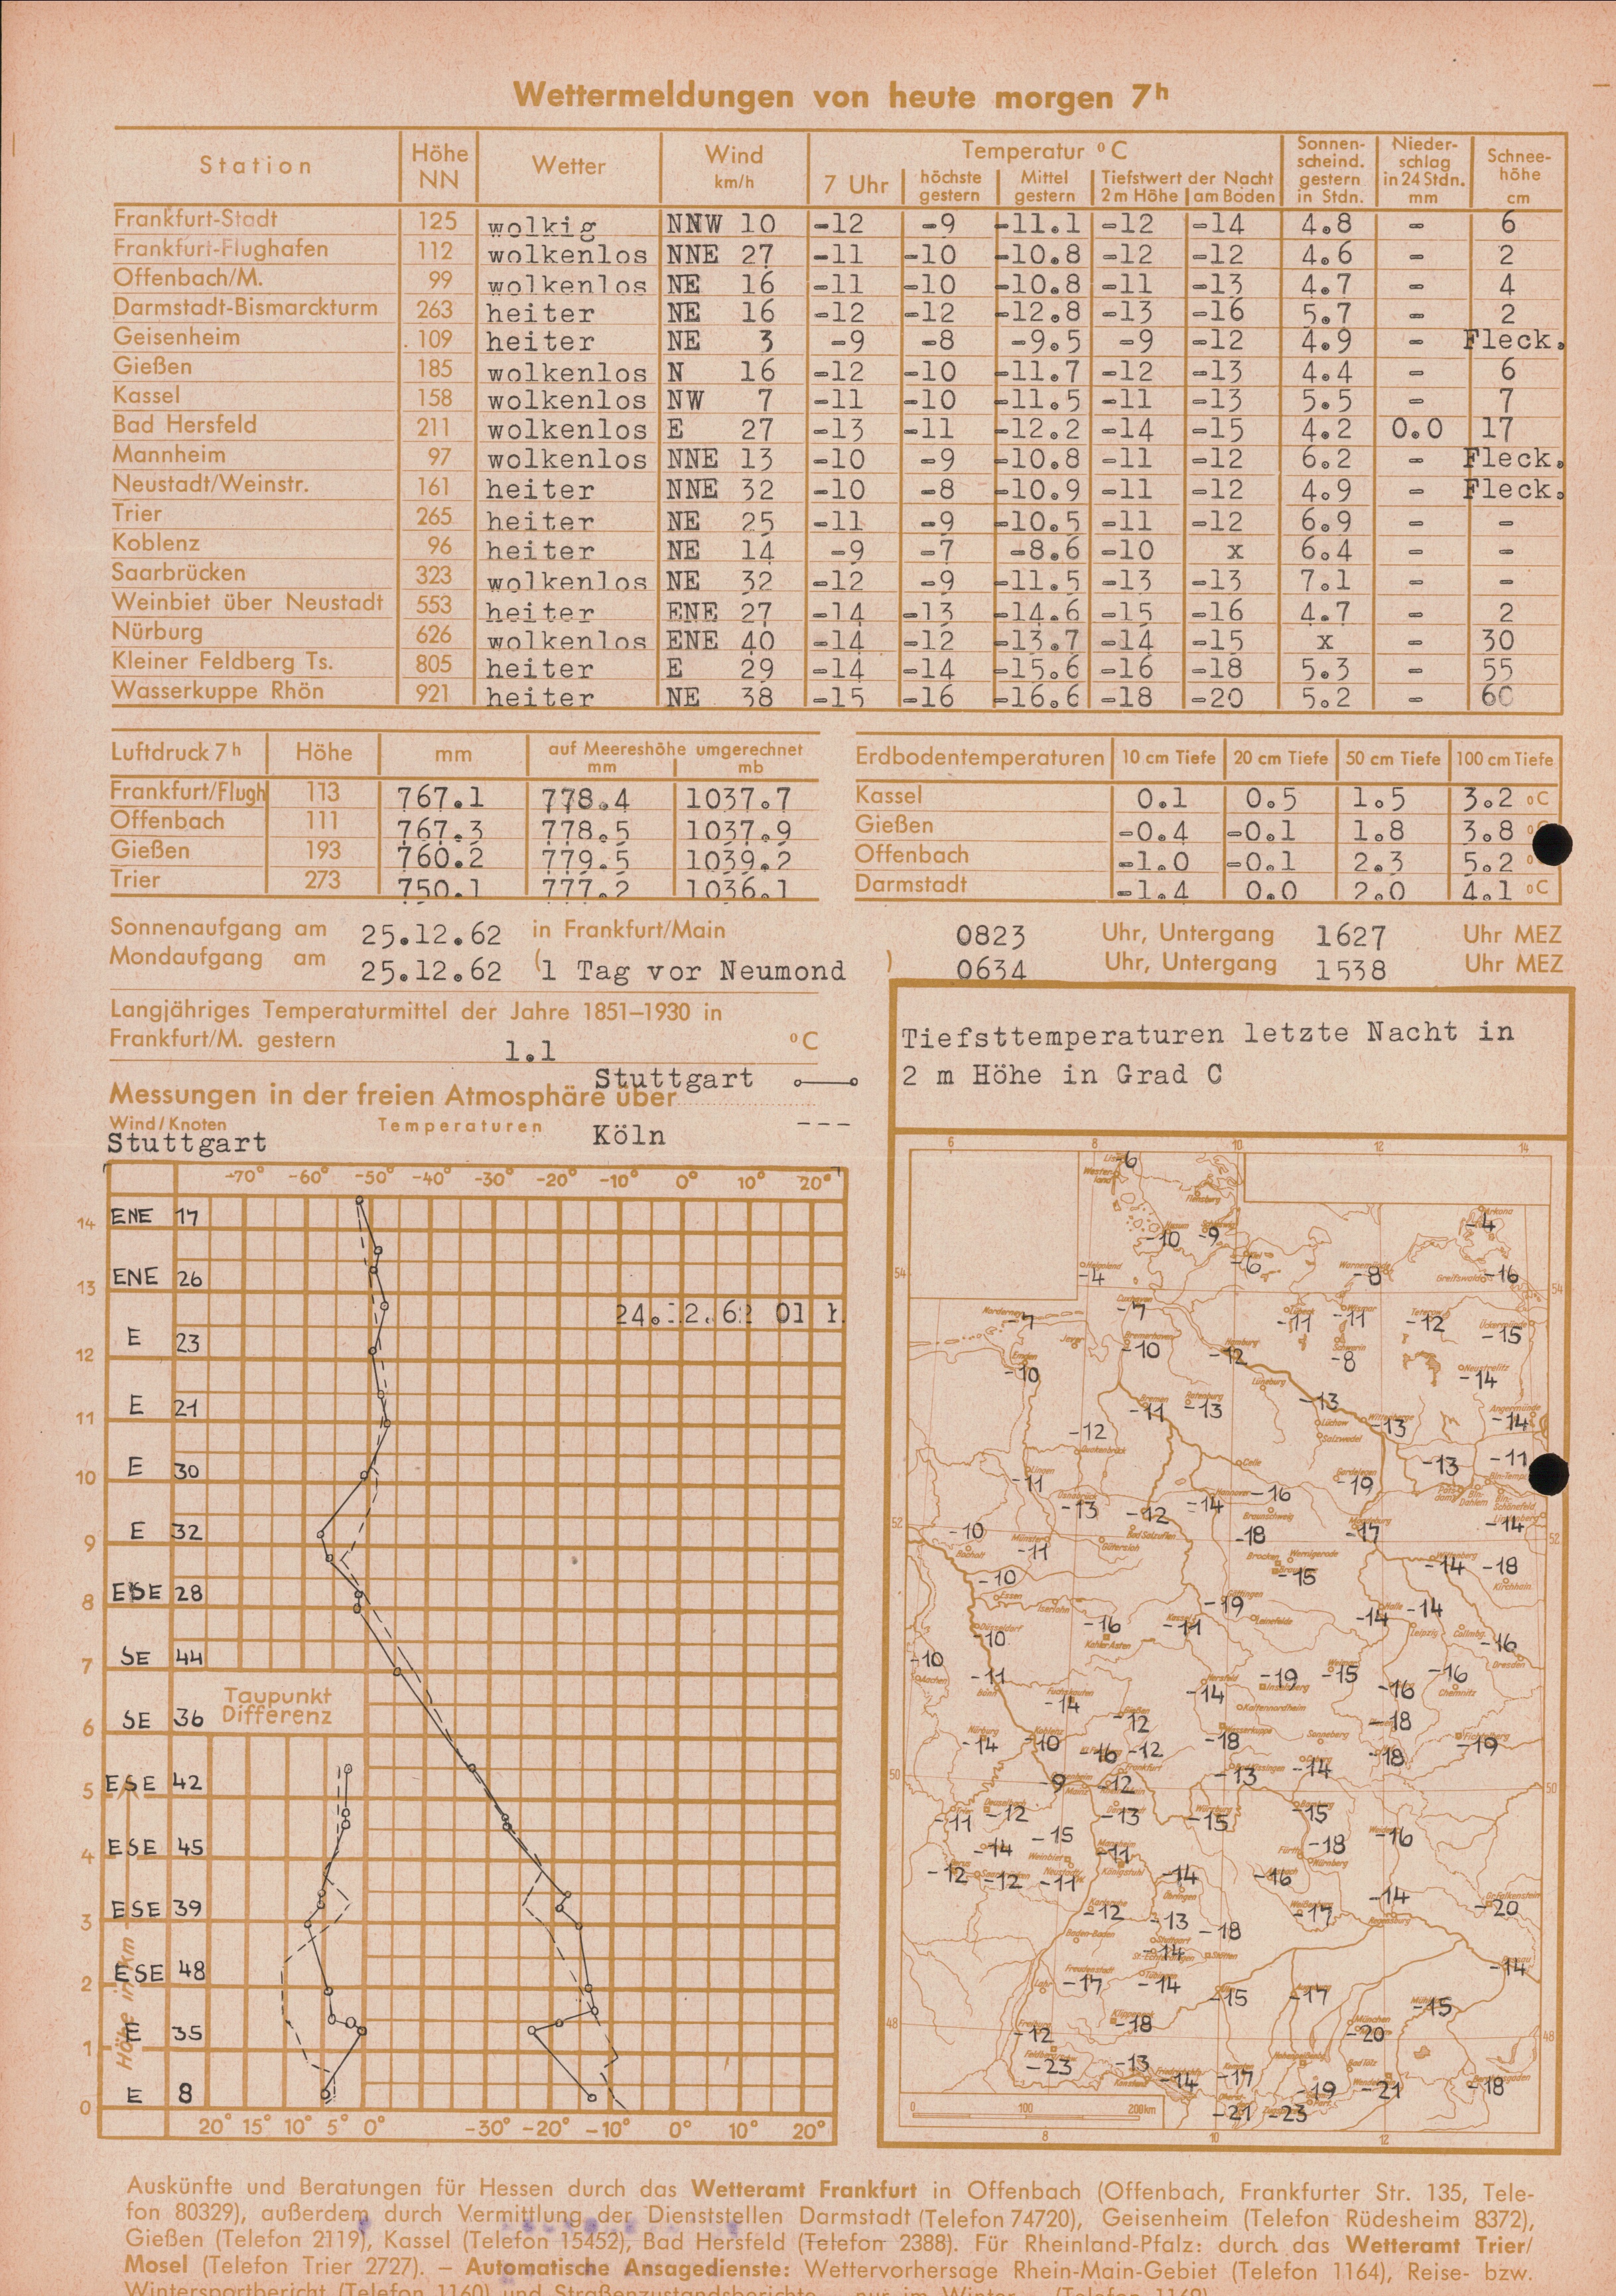 Wettermeldungen von heute morgen 7h
Station Höhe NN Wetter Wind km/h Temperatur °C Sonnenscheind. gestern in Stdn. Niederschlag in 24 Stdn. mm Schneehöhe cm
7 Uhr höchste gestern Mittel gestern Tiefstwert der Nacht 2 m Höhe am Boden
Frankfurt-Stadt 125 wolkig NNW 10 -12 -9 -11.1 -12 -14 4.8 - 6
Frankfurt-Flughafen 112 wolkenlos NNE 27 -11 -10 -10.8 -12 -12 4.6 - 2
Offenbach/M. 99 wolkenlos NE 16 -11 -10 -10.8 -11 -13 4.7 - 4
Darmstadt-Bismarckturm 263 heiter NE 16 -12 -12 -12.8 -13 -16 5.7 - 2
Geisenheim 109 heiter NE 3 -9 -8 -9.5 -9 -12 4.9 - Fleck.
Gießen 185 wolkenlos N 16 -12 -10 -11.7 -12 -13 4.4 - 6
Kassel 158 wolkenlos NW 7 -11 -10 -11.5 -11 -13 5.5 - 7
Bad Hersfeld 211 wolkenlos E 27 -13 -11 -12.2 -14 -15 4.2 0.0 17
Mannheim 97 wolkenlos NNE 13 -10 -9 -10.8 -11 -12 6.2 - Fleck.
Neustadt/Weinstr. 161 heiter NNE 32 -10 -8 -10.9 -11 -12 4.9 - Fleck.
Trier 265 heiter NE 25 -11 -9 -10.5 -11 -12 6.9 - -
Koblenz 96 heiter NE 14 -9 -7 -8.6 -10 x 6.4 - -
Saarbrücken 323 wolkenlos NE 32 -12 -9 -11.5 -13 -13 7.1 - -
Weinbiet über Neustadt 553 heiter ENE 27 -14 -13 -14.6 -15 -16 4.7 - 2
Nürburg 626 wolkenlos ENE 40 -14 -12 -13.7 -14 -15 x - 30
Kleiner Feldberg Ts. 805 heiter E 29 -14 -14 -15.6 -16 -18 5.3 - 55
Wasserkuppe Rhön 921 heiter NE 38 -15 -16 -16.6 -18 -20 5.2 - 60
Luftdruck 7h Höhe mm auf Meereshöhe umgerechnet mm mb
Frankfurt/Flugh 113 767.1 778.4 1037.7
Offenbach 111 767.3 778.5 1037.9
Gießen 193 760.2 779.5 1039.2
Trier 273 750.1 777.2 1036.1
Erdbodentemperaturen 10 cm Tiefe 20 cm Tiefe 50 cm Tiefe 100 cm Tiefe
Kassel 0.1 0.5 1.5 3.2 °C
Gießen -0.4 -0.1 1.8 3.8
Offenbach -1.0 -0.1 2.3 5.2
Darmstadt -1.4 0.0 2.0 4.1 °C
Sonnenaufgang am 25.12.62 in Frankfurt/Main 0823 Uhr, Untergang 1627 Uhr MEZ
Mondaufgang am 25.12.62 (1 Tag vor Neumond ) 0634 Uhr, Untergang 1538 Uhr MEZ
Langjähriges Temperaturmittel der Jahre 1851–1930 in
Frankfurt/M. gestern 1.1 °C
Messungen in der freien Atmosphäre über Stuttgart
Wind/Knoten Temperaturen Köln
Stuttgart
-70° -60° -50° -40° -30° -20° -10° 0° 10° 20°
14 ENE 17
13 ENE 26
24.12.62 01 h
12 E 23
11 E 21
10 E 30
9 E 32
8 ESE 28
7 SE 44
Taupunkt
Differenz
6 SE 36
5 ESE 42
4 ESE 45
3 ESE 39
2 ESE 48
1 E 35
0 E 8
Höhe in km
20° 15° 10° 5° 0° -30° -20° -10° 0° 10° 20°
Tiefsttemperaturen letzte Nacht in
2 m Höhe in Grad C
6 8 10 12 14
-10 -9 -4
-4 -6 -8 -16
-7 -7 -11 -11 -12 -15
-10 -10 -12 -8 -14
-11 -13 -13 -13 -14
-12 -13 -11
-11 -13 -12 -14 -16 -19 -14
-10 -11 -18 -17
-10 -15 -14 -18
-10 -16 -11 -19 -14 -14 -16
-10 -11 -14 -14 -19 -15 -16 -16
-14 -10 -12 -18 -18 -19
-16 -12 -13 -14 -18
-9 -12
-11 -12 -13 -15 -15
-14 -15 -11 -18 -16
-12 -12 -11 -14 -16
-12 -13 -18 -17 -14 -20
-14 -14
-17 -14 -15 -17 -15
-12 -18 -20
-23 -13 -14 -17 -19 -21 -18
-21 -23
0 100 200km
8 10 12
Auskünfte und Beratungen für Hessen durch das Wetteramt Frankfurt in Offenbach (Offenbach, Frankfurter Str. 135, Tele-
fon 80329), außerdem durch Vermittlung der Dienststellen Darmstadt (Telefon 74720), Geisenheim (Telefon Rüdesheim 8372),
Gießen (Telefon 2119), Kassel (Telefon 15452), Bad Hersfeld (Telefon 2388). Für Rheinland-Pfalz: durch das Wetteramt Trier/
Mosel (Telefon Trier 2727). – Automatische Ansagedienste: Wettervorhersage Rhein-Main-Gebiet (Telefon 1164), Reise- bzw.
Wintersportbericht (Telefon 1160) und Straßenzustandsberichte – nur im Winter – (Telefon 1169)